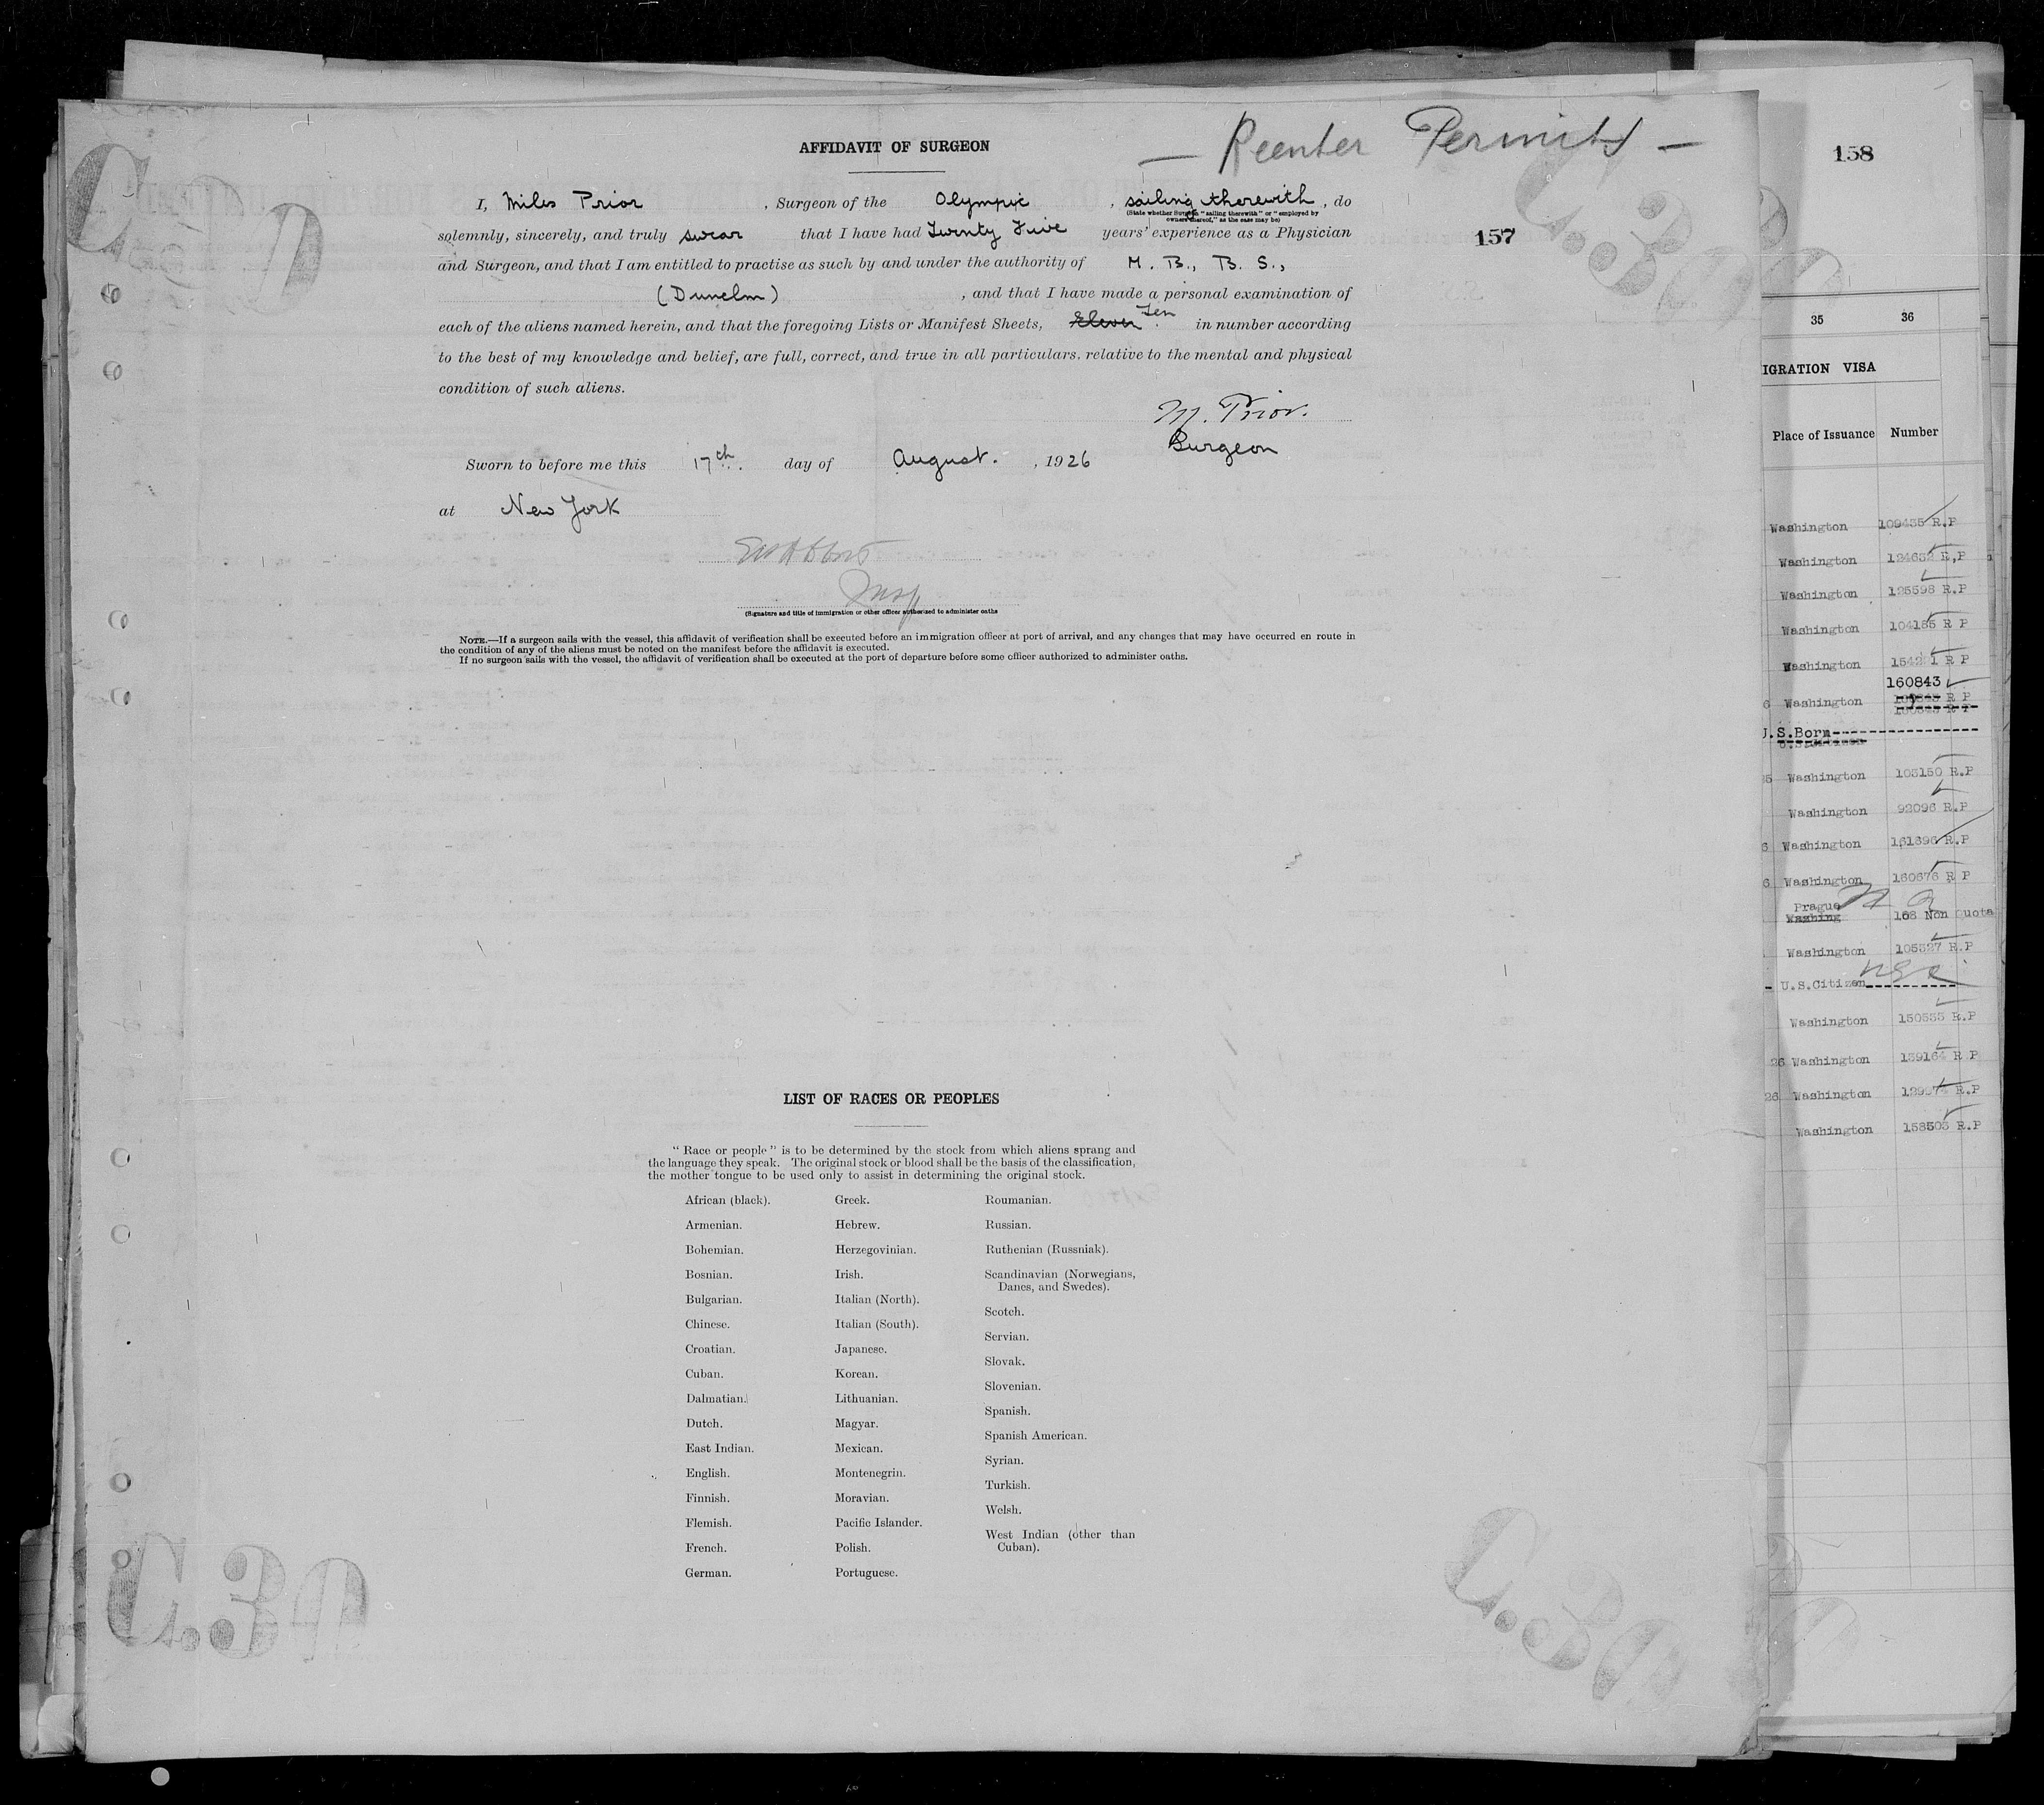 — Reenter Permits —
AFFIDAVIT OF SURGEON
158
157
I, Miles Prior , Surgeon of the Olympic , sailing therewith , do
(State whether Surgeon "sailing therewith" or "employed by
owners thereof," as the case may be)
solemnly, sincerely, and truly swear that I have had Twenty Five years' experience as a Physician
and Surgeon, and that I am entitled to practise as such by and under the authority of M. B., B. S.,
(Dunelm) , and that I have made a personal examination of
each of the aliens named herein, and that the foregoing Lists or Manifest Sheets, Eleven Ten in number according
to the best of my knowledge and belief, are full, correct, and true in all particulars, relative to the mental and physical
condition of such aliens.
M. Prior.
Surgeon
Sworn to before me this 17th. day of August. , 1926
at New York
Insp
(Signature and title of immigration or other officer authorized to administer oaths
NOTE.—If a surgeon sails with the vessel, this affidavit of verification shall be executed before an immigration officer at port of arrival, and any changes that may have occurred en route in
the condition of any of the aliens must be noted on the manifest before the affidavit is executed.
If no surgeon sails with the vessel, the affidavit of verification shall be executed at the port of departure before some officer authorized to administer oaths.
LIST OF RACES OR PEOPLES
"Race or people" is to be determined by the stock from which aliens sprang and
the language they speak. The original stock or blood shall be the basis of the classification,
the mother tongue to be used only to assist in determining the original stock.
African (black).
Armenian.
Bohemian.
Bosnian.
Bulgarian.
Chinese.
Croatian.
Cuban.
Dalmatian.
Dutch.
East Indian.
English.
Finnish.
Flemish.
French.
German.
Greek.
Hebrew.
Herzegovinian.
Irish.
Italian (North).
Italian (South).
Japanese.
Korean.
Lithuanian.
Magyar.
Mexican.
Montenegrin.
Moravian.
Pacific Islander.
Polish.
Portuguese.
Roumanian.
Russian.
Ruthenian (Russniak).
Scandinavian (Norwegians,
Danes, and Swedes).
Scotch.
Servian.
Slovak.
Slovenian.
Spanish.
Spanish American.
Syrian.
Turkish.
Welsh.
West Indian (other than
Cuban).
C.30
C.30
C.30
35 36
IGRATION VISA
Place of Issuance Number
Washington 109435 R.P
Washington 124632 R,P
Washington 125598 R.P
Washington 104185 R P
Washington R P
160843
6 Washington R P
U.S.Born
5 Washington 103150 R.P
Washington 92096 R.P
6 Washington 161696 R.P
6 Washington 160676 R P
Prague
Washing 168 Non Quota
Washington 105327 R.P
- U.S.Citizen
Washington 150535 R.P
26 Washington 139164 R P
26 Washington R.P
Washington 158503 R.P